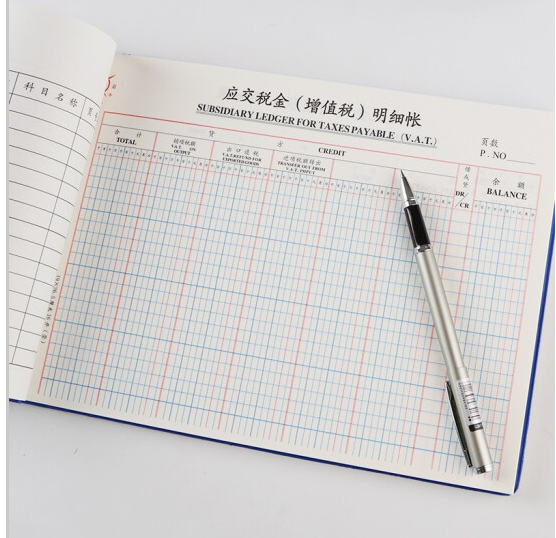 科目名称
应交税金（增值税）明细帐
SUBSIDIARY LEDGER FOR TAXES PAYABLE (V.A.T.)
页数
P. NO
贷 方 CREDIT
合 计
TOTAL
销项税额
V.A.T. ON
OUTPUT
出口退税
V.A.T.REFUND FOR
EXPORTED GOODS
进项税额转出
TRANSFER OUT FROM
V.A.T. INPUT
借或贷
DR/
CR
余 额
BALANCE